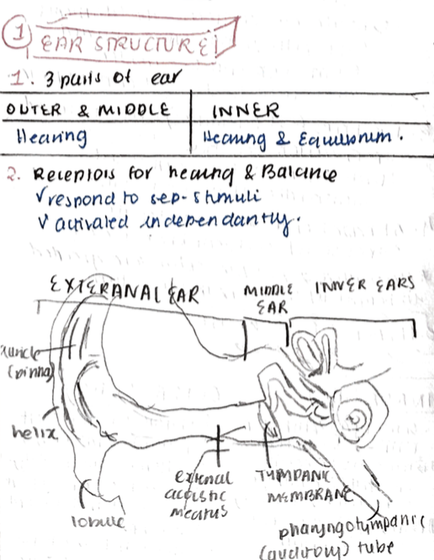 1 EAR STRUCTURE
1. 3 parts of ear
OUTER & MIDDLE | INNER
Hearing | Hearing & Equilibrium.
2. Receptors for hearing & Balance
√ respond to sep. stimuli
√ activated independantly.
EXTERANAL EAR MIDDLE EAR INNER EARS
auricle (pinna)
helix
lobule
external acoustic meatus
TYMPANIC MEMBRANE
pharyngotympanic (auditory) tube